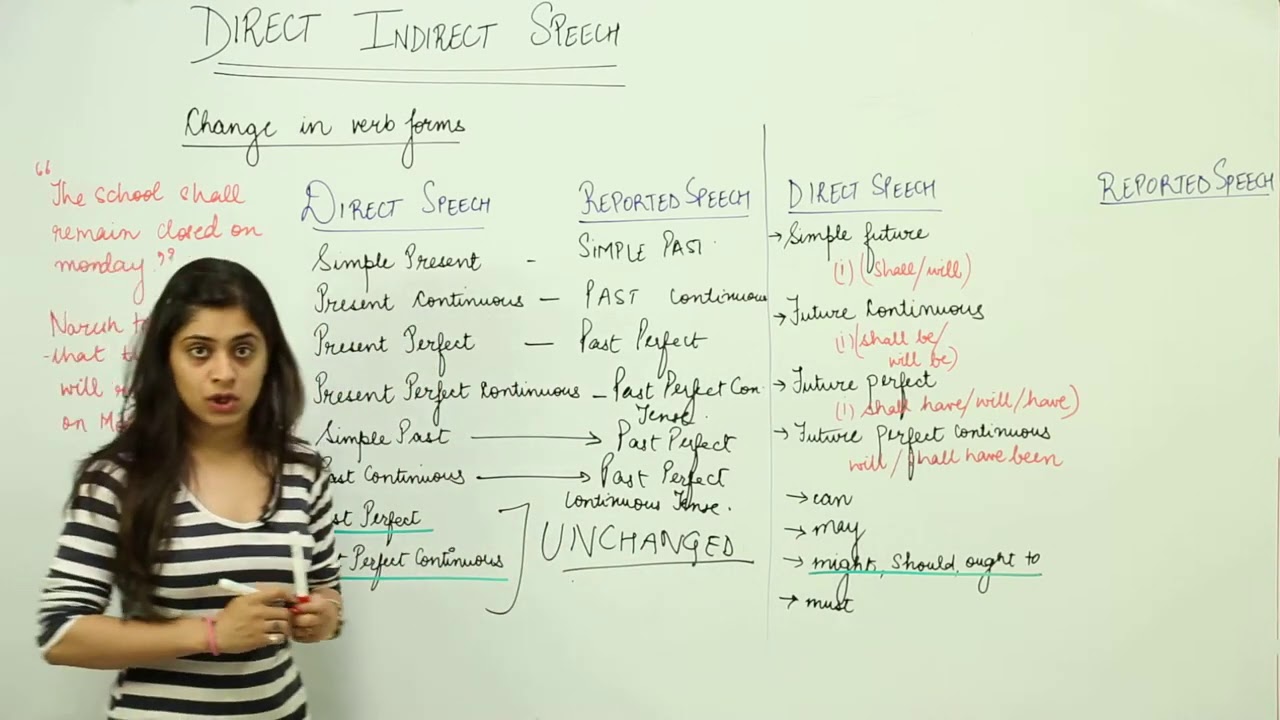 DIRECT INDIRECT SPEECH
Change in verb forms
"The school shall
remain closed on
monday."
Naresh
that
will
on
DIRECT SPEECH REPORTED SPEECH
Simple Present - SIMPLE PAST.
Present Continuous - PAST Continuous
Present Perfect - Past Perfect
Present Perfect Continuous - Past Perfect Con.
Tense.
Simple Past → Past Perfect
ast Continuous → Past Perfect
Continuous Tense.
st Perfect
t Perfect Continuous
UNCHANGED
DIRECT SPEECH REPORTED SPEECH
→ Simple future
(i) (shall/will)
→ Future Continuous
(i) (shall be/
will be)
→ Future perfect
(i) shall have/will/have)
→ Future perfect continuous
will / shall have been
→ can
→ may
→ might, should, ought to
→ must